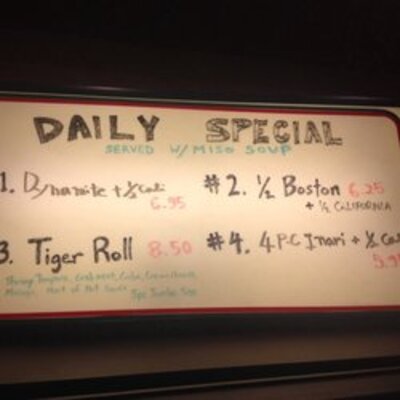 DAILY SPECIAL
SERVED W/ MISO SOUP
1. Dynamite + ½ Cali 6.95
#2. ½ Boston 6.25
+ ½ CALIFORNIA
3. Tiger Roll 8.50
#4. 4 P.C Inari + ½ Cali
5.95
Shrimp Tempura, Crab meat, Cream cheese